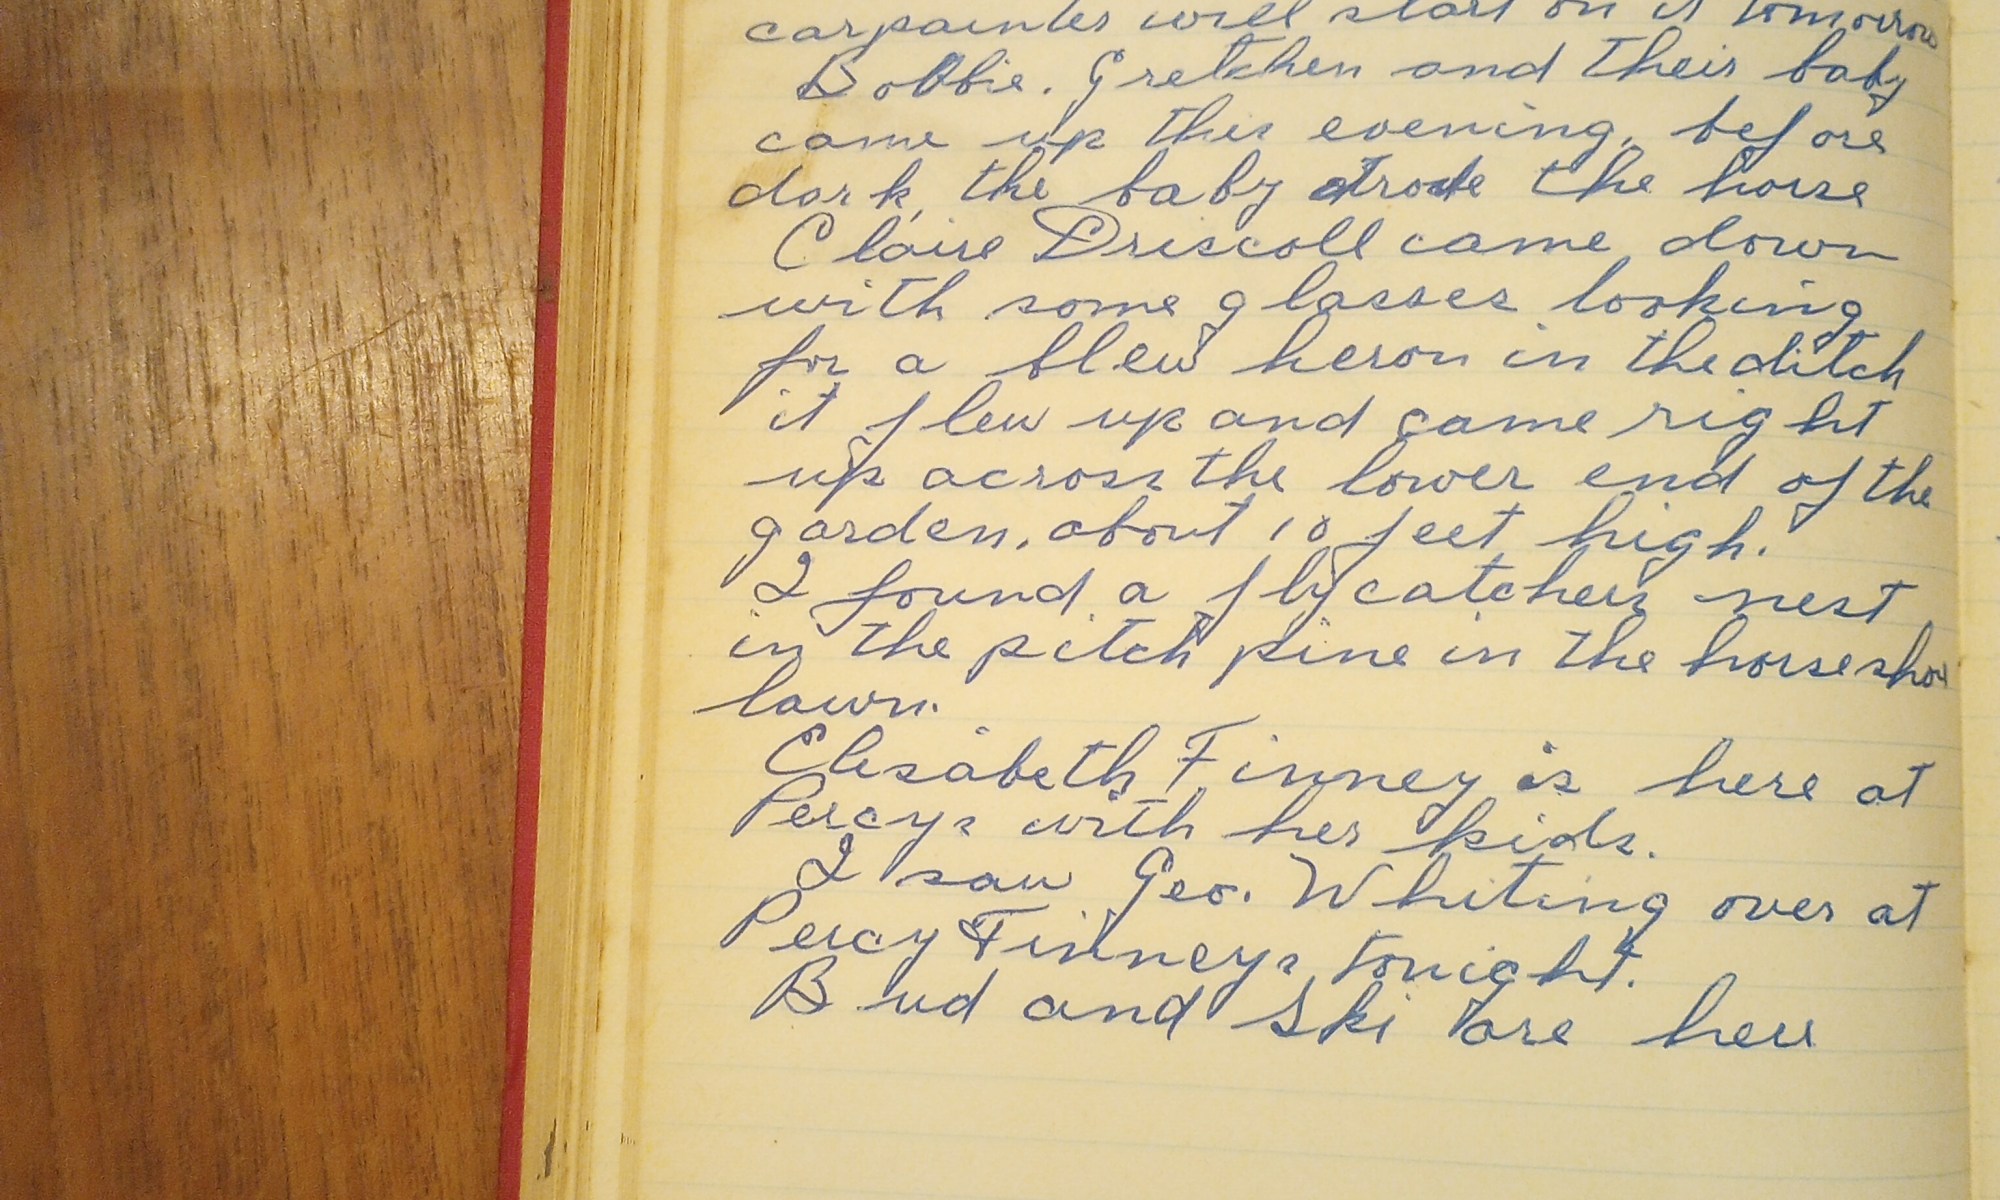 carpainter will start on it tomorrow
Bobbie. Gretchen and their baby
came up this evening, before
dark, the baby rode the horse
Claire Driscoll came down
with some glasses looking
for a blew heron in the ditch
it flew up and came right
up across the lower end of the
garden, about 10 feet high.
I found a flycatchers nest
in the pitch pine in the horseshoe
lawn.
Elisabeth Finney is here at
Percys with her kids.
I saw Geo. Whiting over at
Percy Finneys tonight.
Bud and Ski are here